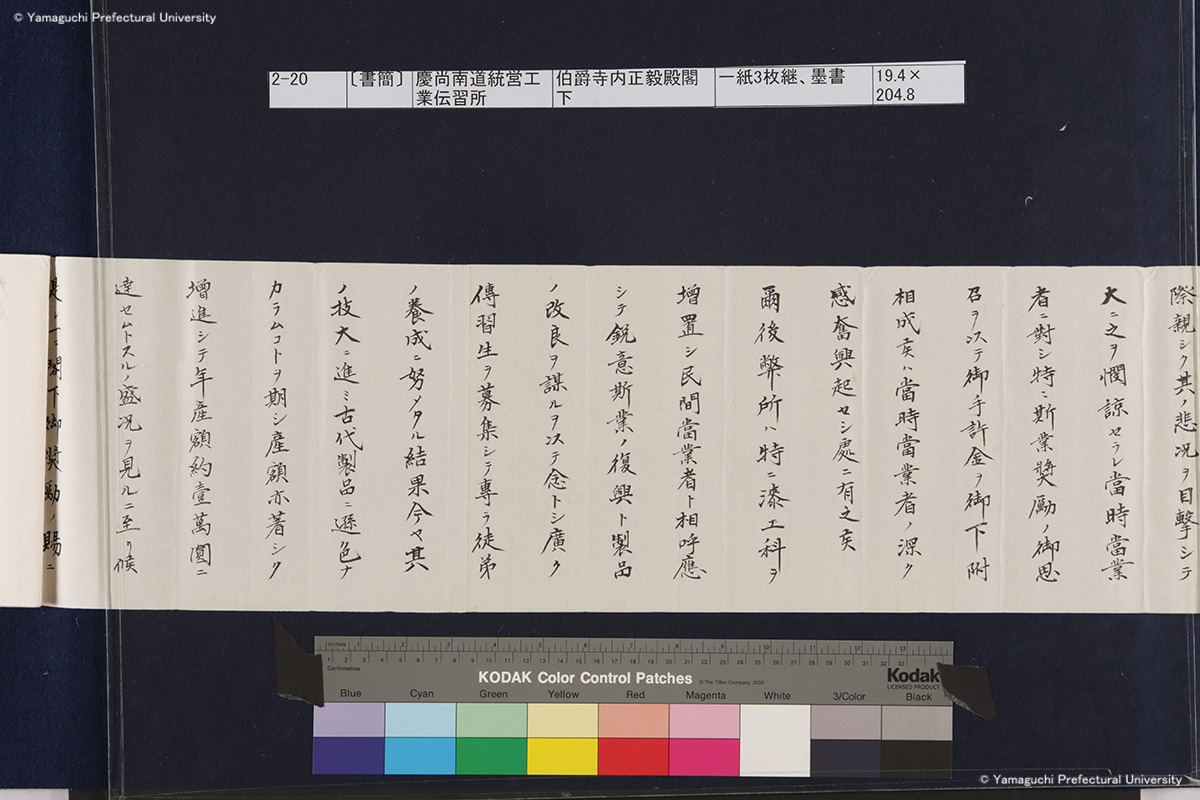 © Yamaguchi Prefectural University
2-20
〔書簡〕
慶尚南道統営工
業伝習所
伯爵寺内正毅殿閣
下
一紙3枚継、墨書
19.4×
204.8
際親シク其ノ悲况ヲ目撃シテ
大ニ之ヲ憫諒セラレ當時當業
者ニ對シ特ニ斯業奬励ノ御思
召ヲ以テ御手許金ヲ御下附
相成矦ハ當時當業者ノ深ク
感奮興起セシ處ニ有之矦
爾後弊所ハ特ニ漆工科ヲ
增置シ民間當業者ト相呼應
シテ鋭意斯業ノ復興ト製品
ノ改良ヲ謀ルヲ以テ念トシ廣ク
傳習生ヲ募集シテ專ラ徒弟
ノ養成ニ努メタル結果今ヤ其
ノ技大ニ進ミ古代製品ニ遜色ナ
カラムコトヲ期シ産額亦著シク
增進シテ年産額約壹萬圓ニ
達セムトスルノ盛况ヲ見ルニ至リ候
是レ一ニ閣下御奬勵ノ賜ニ
Inches
Centimetres
KODAK Color Control Patches
© The Tiffen Company, 2000
Kodak
LICENSED PRODUCT
Blue
Cyan
Green
Yellow
Red
Magenta
White
3/Color
Black
© Yamaguchi Prefectural University